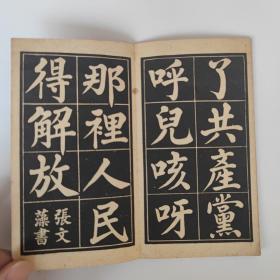 了共產黨
呼兒咳呀
那裡人民
得解放
張文
藻書